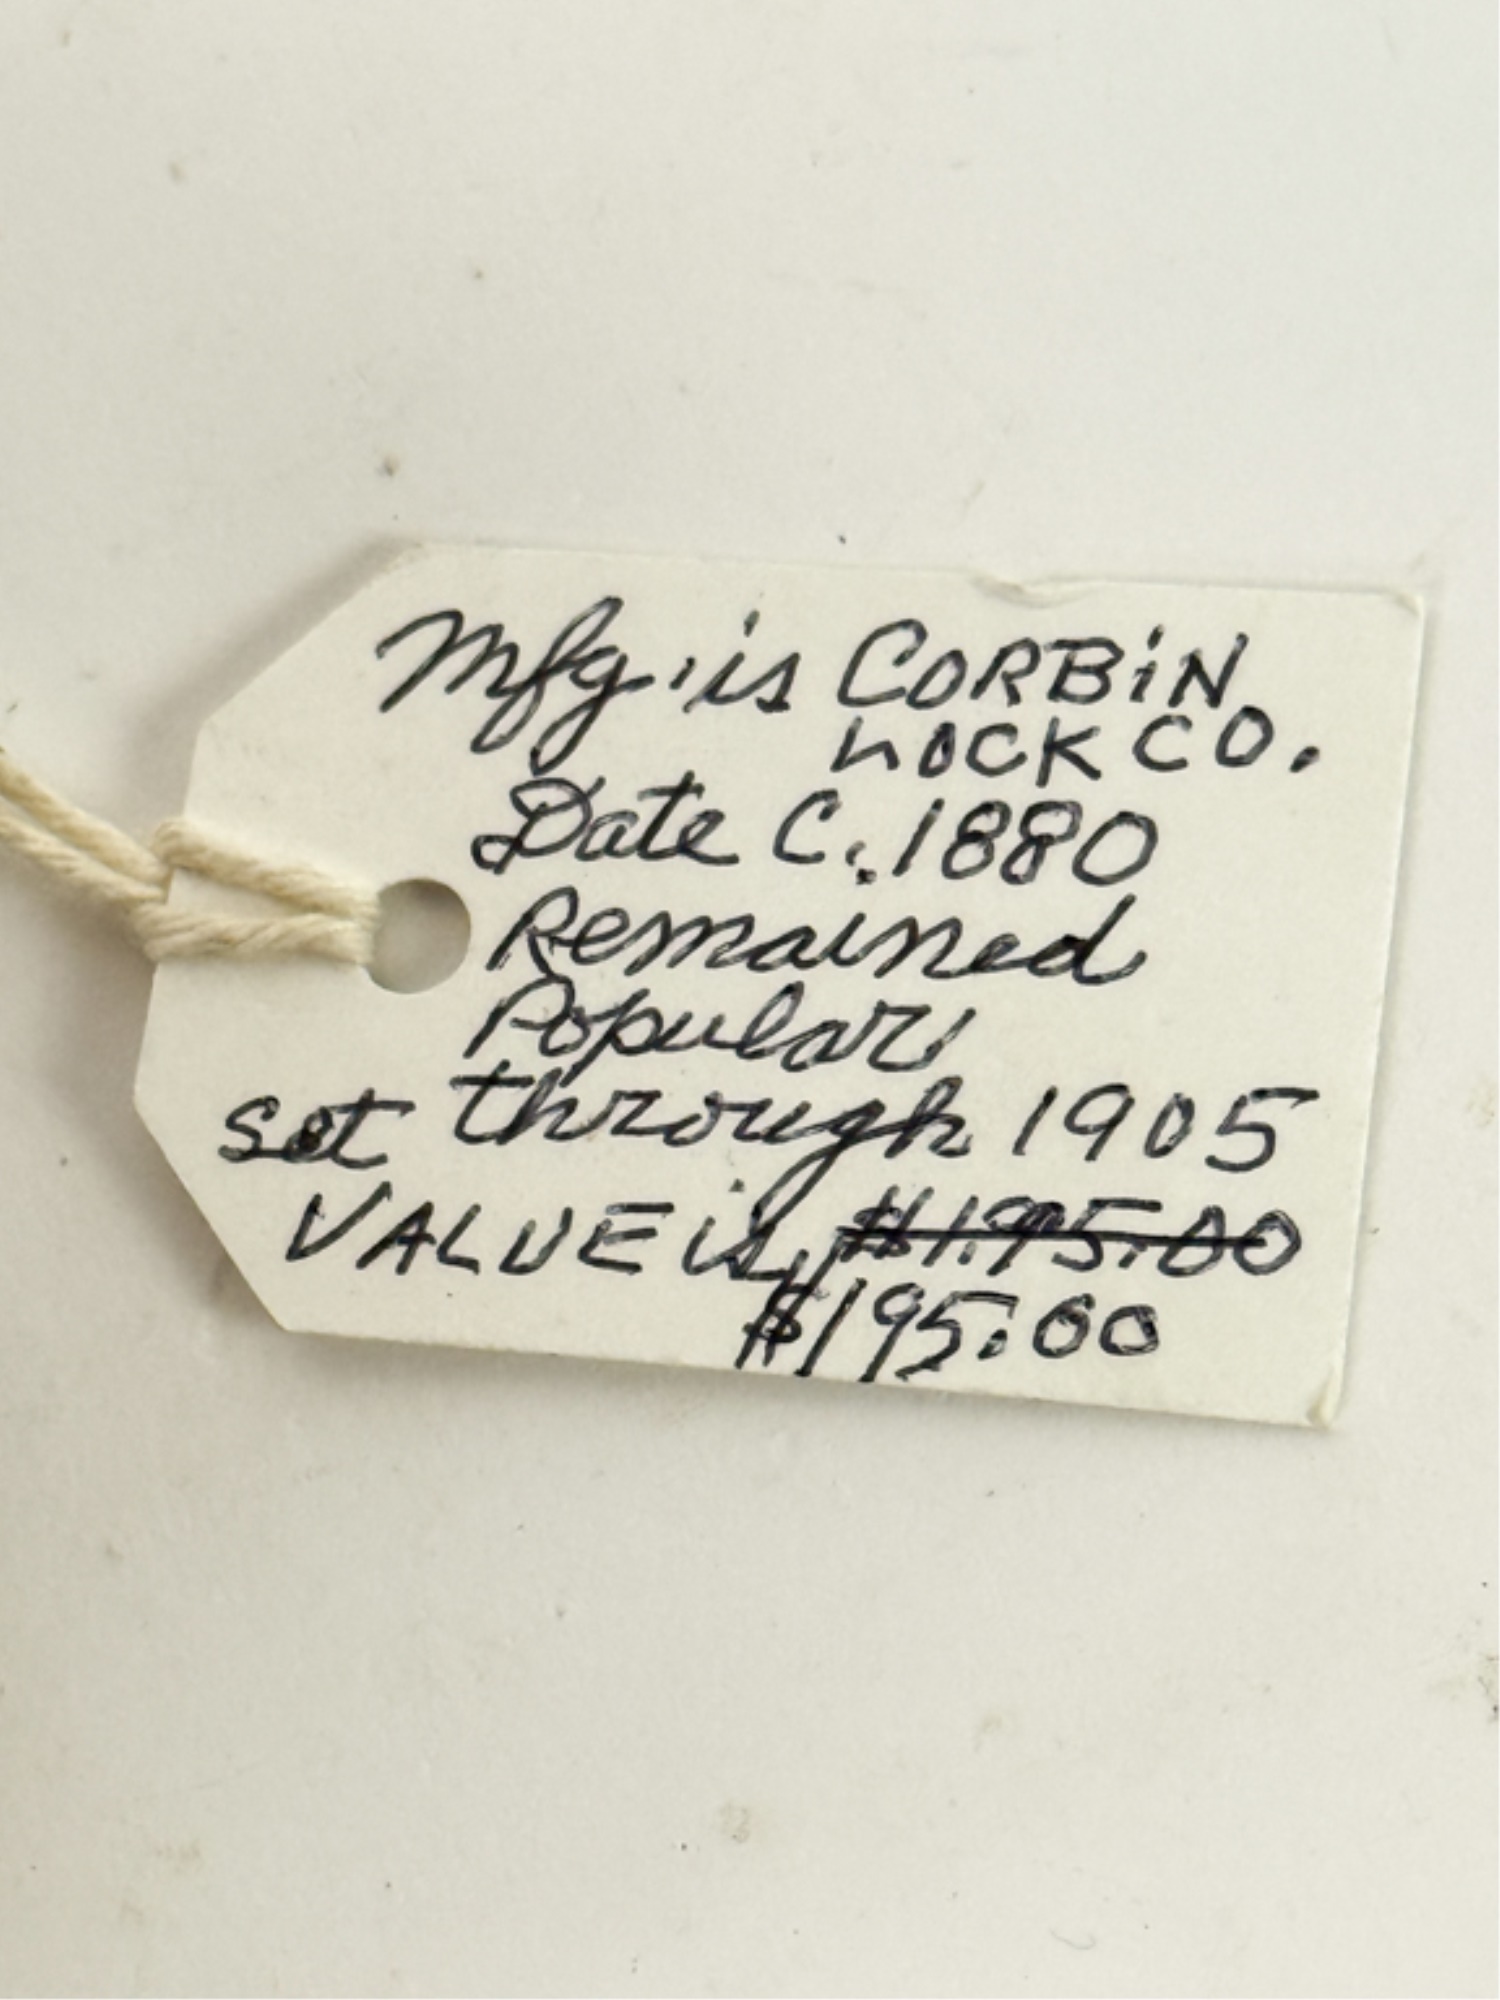 Mfg. is CORBiN
LOCK CO.
Date C. 1880
Remained
Popular
through 1905
set
VALUE is $1.95.00
$195.00